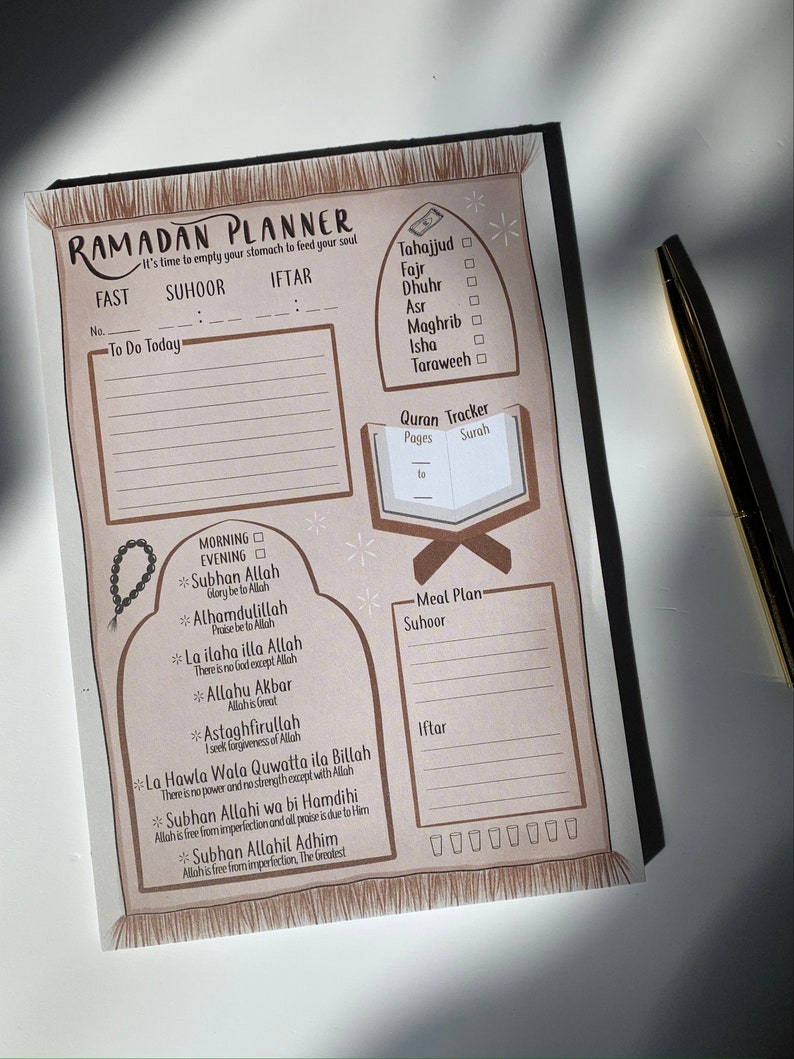 RAMADAN PLANNER
It's time to empty your stomach to feed your soul
FAST SUHOOR IFTAR
No. ____ __ __ : __ __ __ __ : __ __
To Do Today
Tahajjud
Fajr
Dhuhr
Asr
Maghrib
Isha
Taraweeh
Quran Tracker
Pages Surah
__
to
__
MORNING
EVENING
Subhan Allah
Glory be to Allah
Alhamdulillah
Praise be to Allah
La ilaha illa Allah
There is no God except Allah
Allahu Akbar
Allah is Great
Astaghfirullah
I seek forgiveness of Allah
La Hawla Wala Quwatta ila Billah
There is no power and no strength except with Allah
Subhan Allahi wa bi Hamdihi
Allah is free from imperfection and all praise is due to Him
Subhan Allahil Adhim
Allah is free from imperfection, The Greatest
Meal Plan
Suhoor
Iftar